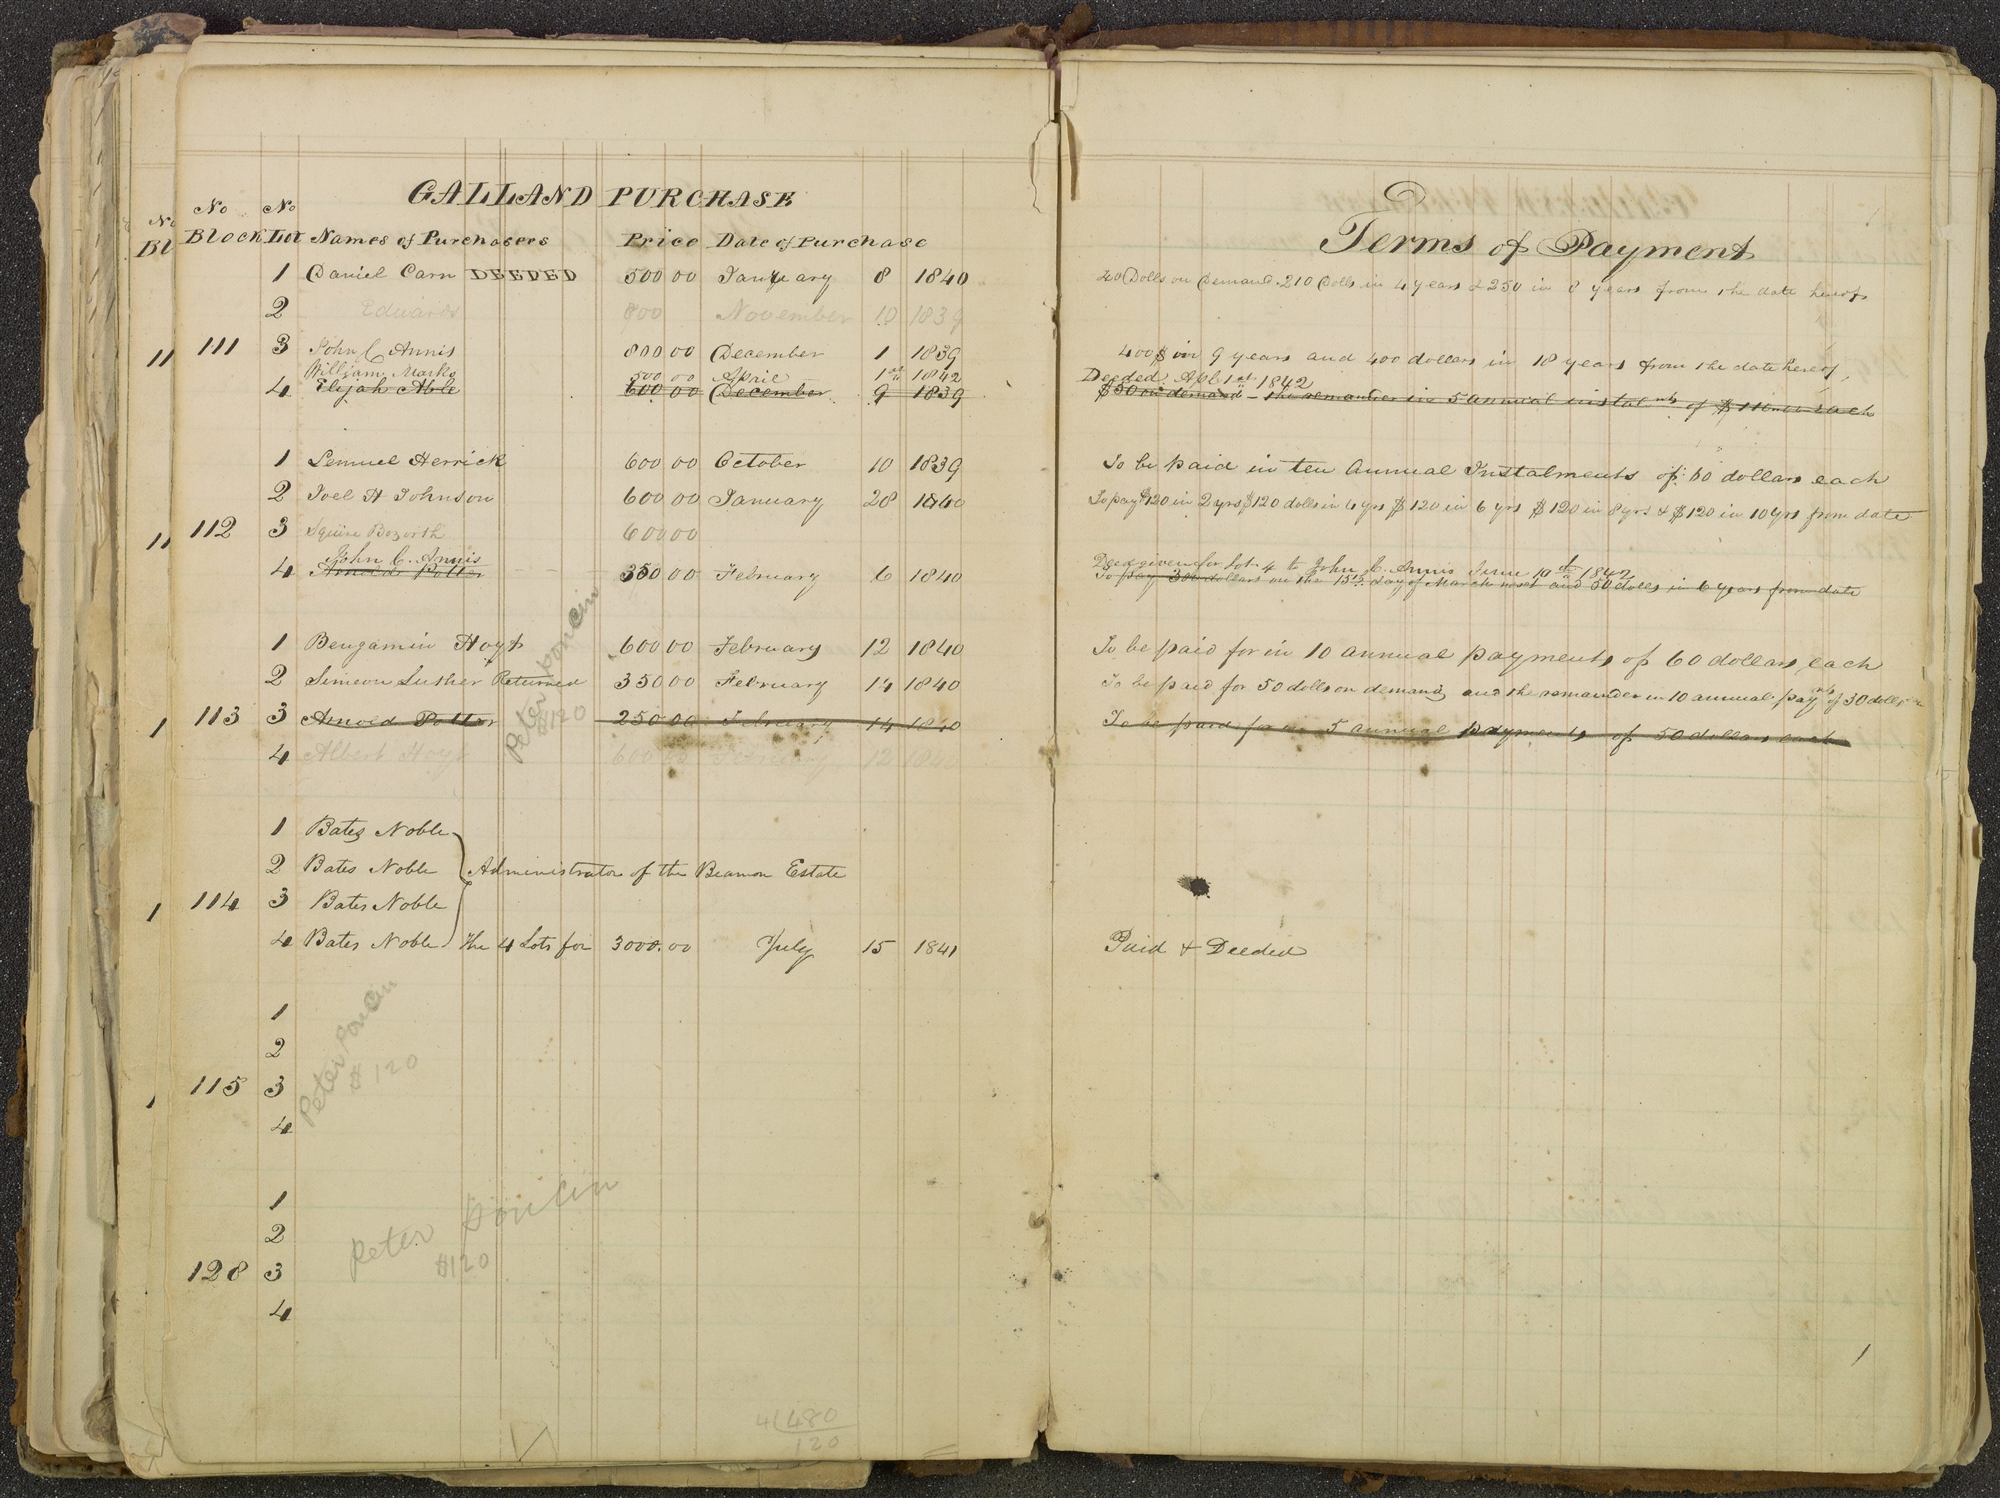 GALLAND PURCHASE
No No
Block Lot Names of Purchasers Price Date of Purchase
1 Daniel Carn DEEDED 500 00 January 8 1840
2 Edwards 800 November 10 1839
111 3 John C Annis 800 00 December 1 1839
William Marks 500 00 April 1st 1842
4 Elijah Able 600 00 December 9 1839
1 Lemuel Herrick 600 00 October 10 1839
2 Joel H Johnson 600 00 January 28 1840
112 3 Squire Bozorth 600 00
John C. Annis
4 Arnold Potter 350 00 February 6 1840
1 Bengamin Hoyt 600 00 February 12 1840
2 Simeon Luther Returned 350 00 February 14 1840
113 3 Arnold Potter 250 00 February 14 1840
4 Albert Hoyt 600 00 February 12 1840
Peter Poncin
$120
1 Bates Noble
2 Bates Noble Administrator of the Beamon Estate
114 3 Bates Noble
4 Bates Noble The 4 Lots for 3000.00 July 15 1841
1
2
115 3
4
Peter Poncin
$120
1
2
128 3
4
Peter Poncin
$120
4 480
120
No
Bl
11
11
1
1
Terms of Payment
40 Dolls on Demand. 210 Dolls in 4 years & 250 in 8 years from the date hereof
400$ in 9 years and 400 dollars in 18 years from the date hereof,
Deeded Apl. 1st 1842
$50 on demand - the remainder in 5 annual instalmts of $110.00 each
To be paid in ten Annual Instalments of 60 dollars each
To pay $120 in 2 yrs $120 dolls in 4 yrs $120 in 6 yrs $120 in 8 yrs & $120 in 10 yrs from date
Deed given for Lot 4 to John C. Annis June 10th 1842
To pay 300 dollars on the 15th day of March next and 50 dolls in 6 years from date
To be paid for in 10 annual payments of 60 dollars each
To be paid for 50 dolls on demand, and the remainder in 10 annual paymts of 30 dolls
To be paid for in 5 annual payments of 50 dollars each
Paid & Deeded
1